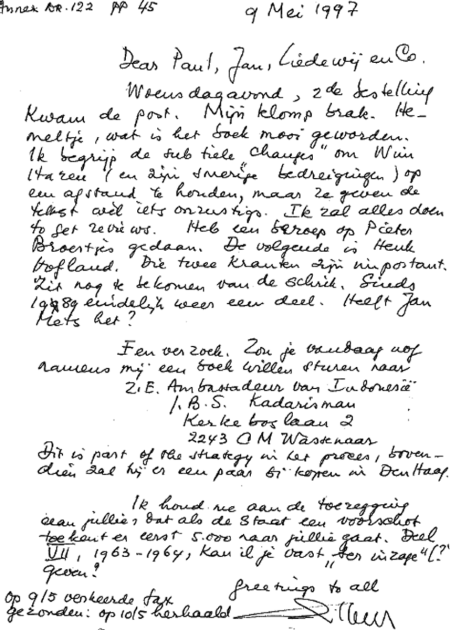 Annex nr. 122 pp 45
9 Mei 1997
Dear Paul, Jan, Liedewij en Co.
Woensdagavond, 2de bestelling
kwam de post. Mijn klomp brak. He-
meltje, wat is het boek mooi geworden.
Ik begrijp de subtiele "changes" om Wim
(en zijn smerige bedreigingen) op
een afstand te houden, maar ze geven de
tekst wel iets onrustigs. Ik zal alles doen
to get reviews. Heb een beroep op Pieter
Broertjes gedaan. De volgende is Henk
Hofland. Die twee kranten zijn important.
Zit nog te bekomen van de schrik. Sinds
1989 eindelijk weer een deel. Heeft Jan
Mets het?
Een verzoek. Zou je vandaag nog
namens mij een boek willen sturen naar
Z.E. Ambassadeur van Indonesië
J.B.S. Kadarisman
Kerkeboslaan 2
2243 CM Wassenaar
Dit is part of the strategy in het proces, boven-
dien zal hij er een paar bij kopen in Den Haag.
Ik houd me aan de toezegging
aan jullie, dat als de Staat een voorschot
toekent er eerst 5.000 naar jullie gaat. Deel
VII, 1963-1964, kan ik je vast "ter inzage" (?
geven?
greetings to all
op 9/5 verkeerde fax
gezonden: op 10/5 herhaald